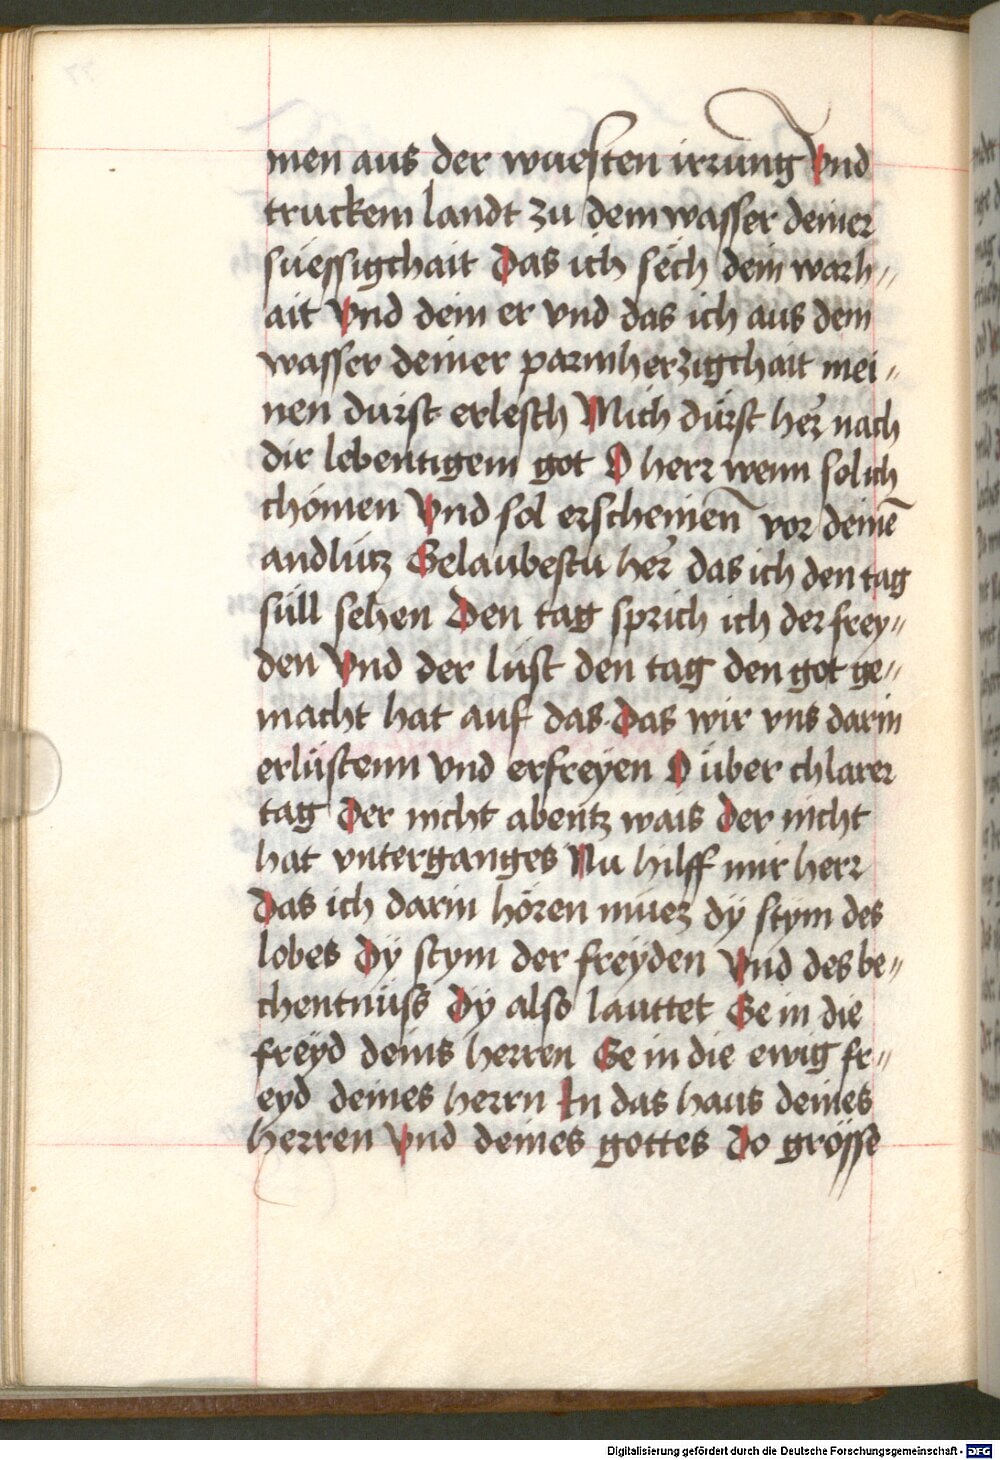 men aus der wuesten irrung Vnd
truckem landt zu dem wasser deiner
süessigchait Das ich sëch dein warh〃
ait Vnd dein er vnd das ich aus dem
wasser deiner parmherzigchait mei〃
nen durst erlesch Mich dürst her̄ nach
dir lebentigem got O herr wenn sol ich
chömen Vnd sol erscheinen̄ vor deinē
andlütz Gelaubestu her̄ das ich den tag
süll sehen Den tag sprich ich der frey〃
den Vnd der lust den tag den got ge〃
macht hat auf das. Das wir vns darin
erlüstenn vnd erfreyen O über chlarer
tag Der nicht abentz wais Der nicht
hat vnterganges Nu hilff mir herr
Das ich darin hören müez dÿ stym des
lobes Dÿ stym der freÿden Vnd des be〃
chentnüss Dÿ also lauttet Ge in die
freÿd deins herren Ge in die ewig fr〃
eyd deines herrn In das haus deines
herren Vnd deines gottes Do grösse
Digitalisierung gefördert durch die Deutsche Forschungsgemeinschaft - DFG